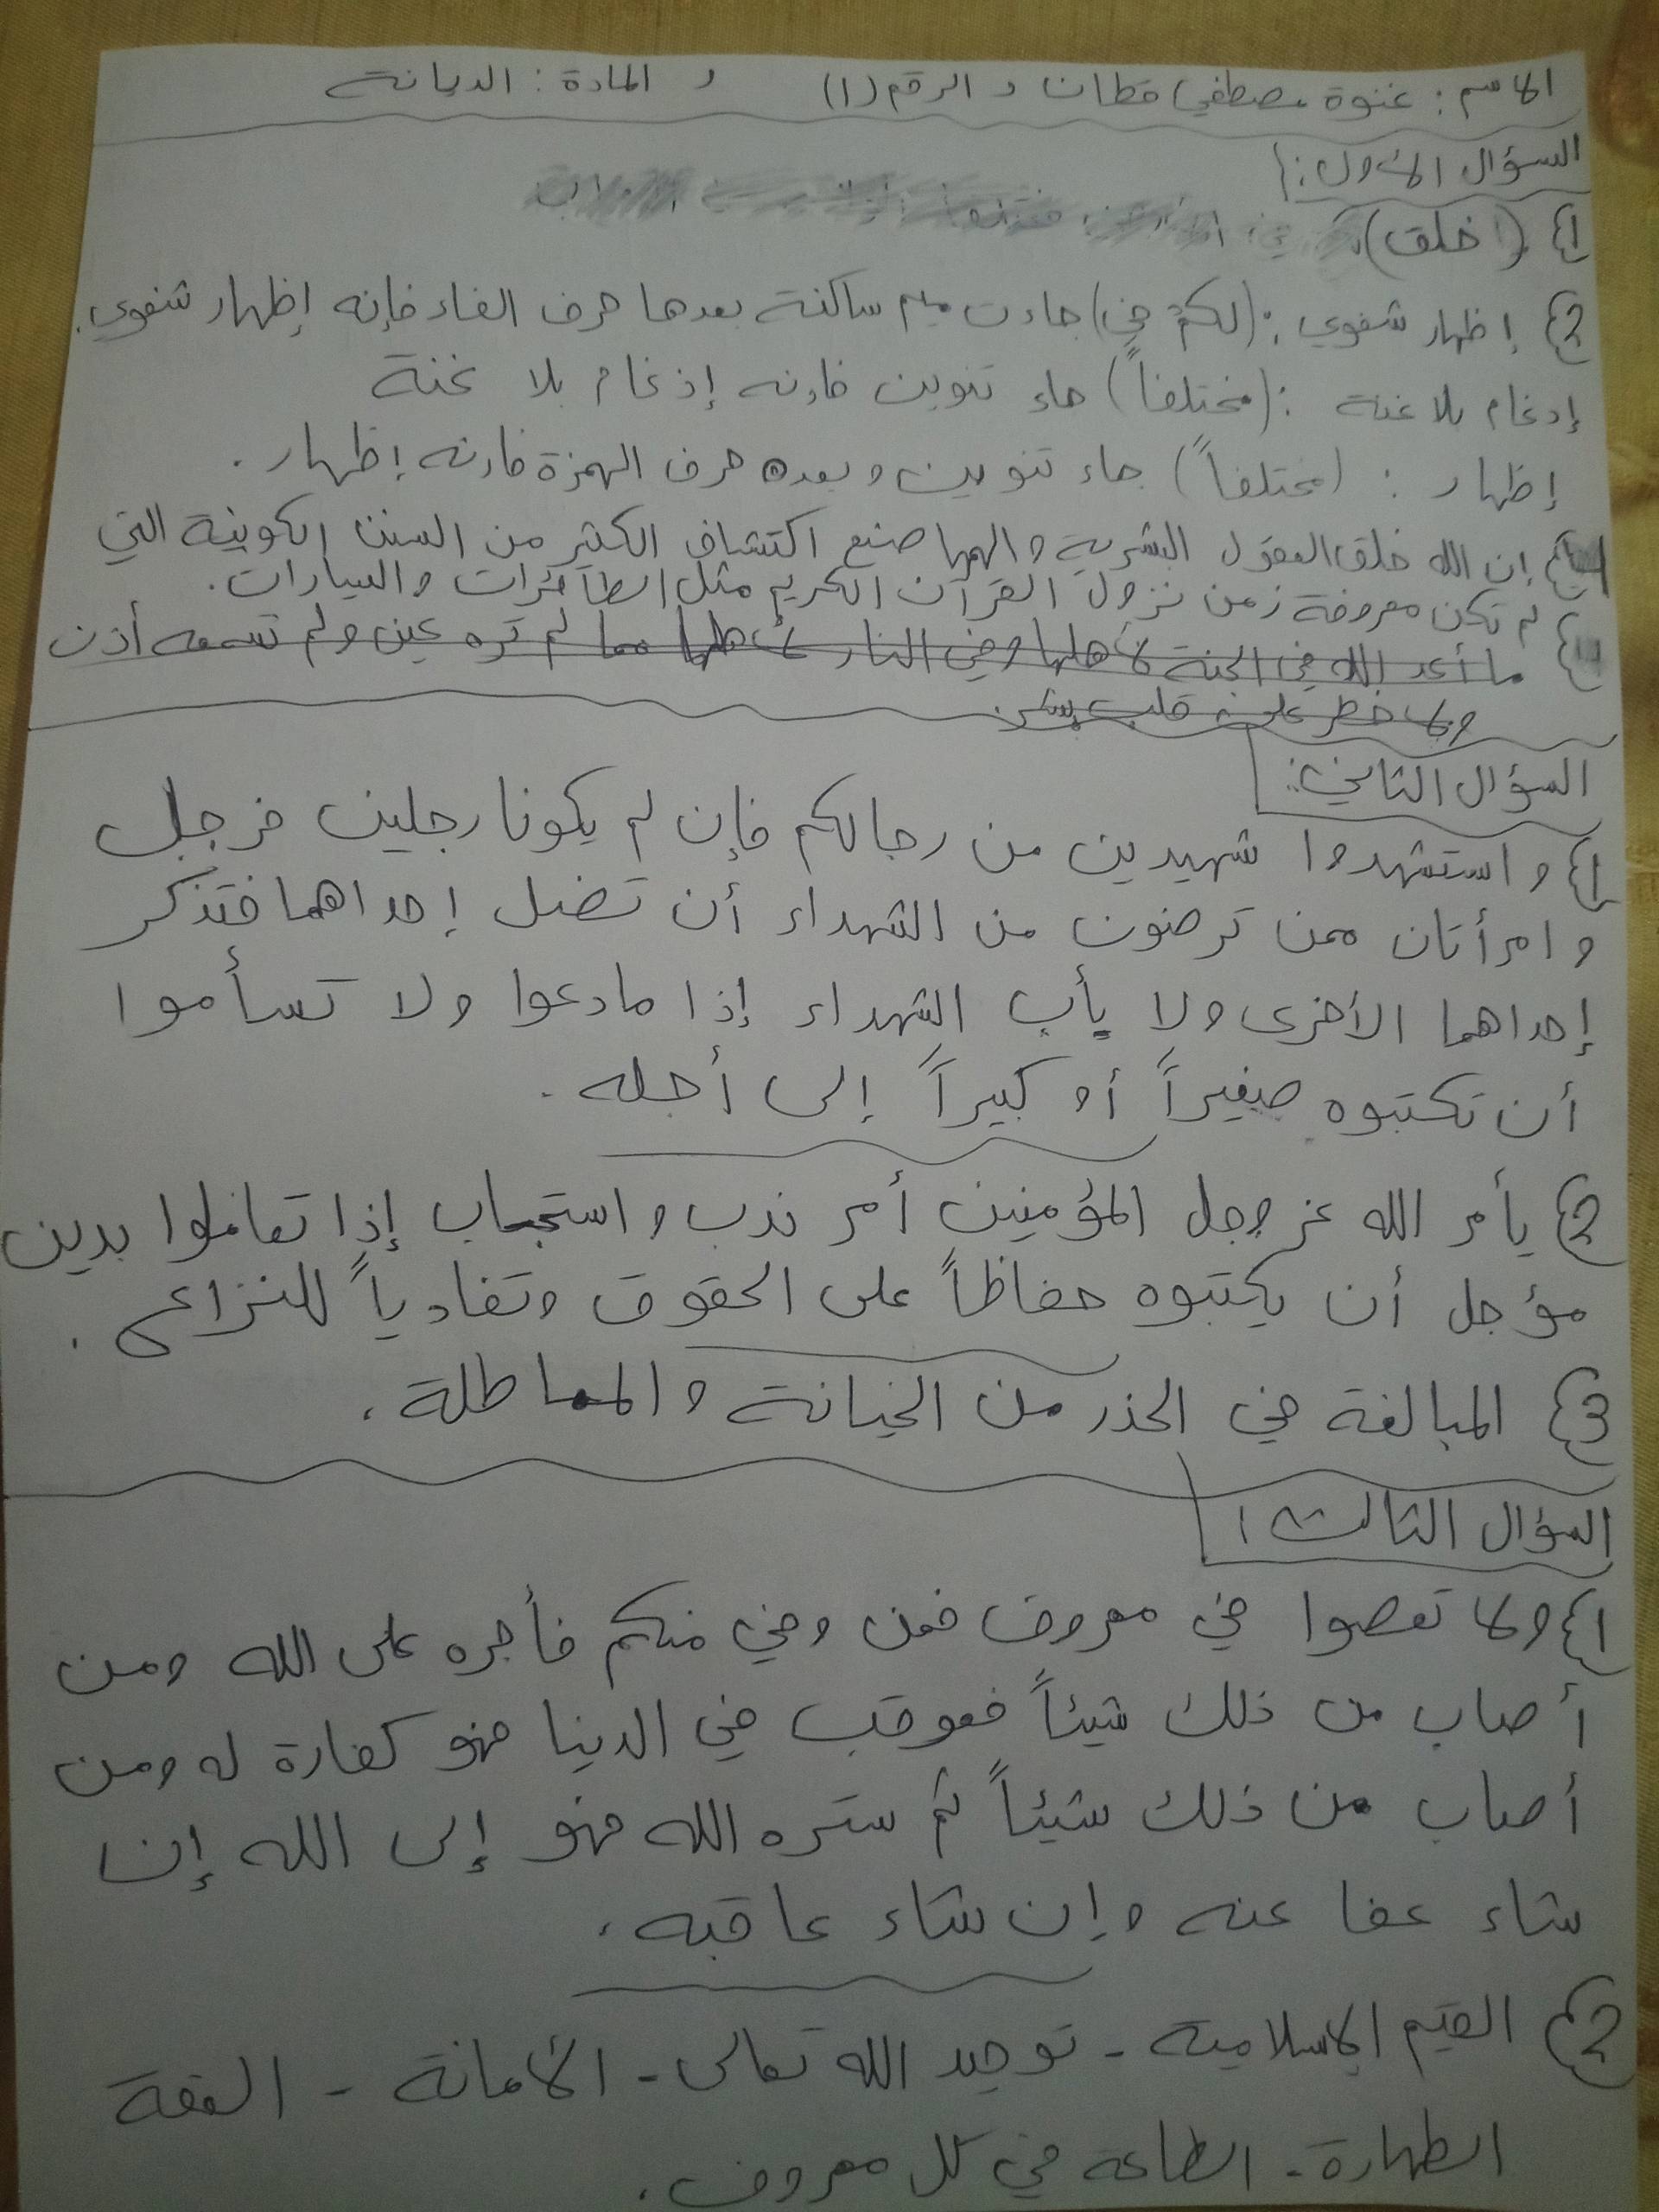 الاسم : غنوة مصطفى قطان و الرقم (١) و المادة : الديانة
السؤال الأول :
١} (خلق)
2} إظهار شفوي : (لكم في) جاءت ميم ساكنة بعدها حرف الفاء فإنه إظهار شفوي .
إدغام بلا غنة : (مختلفاً) جاء تنوين فإنه إذغام بلا غنة
إظهار : (مختلفاً) جاء تنوين وبعده حرف الهمزة فإنه إظهار .
إن الله خلق العقول البشرية وألهمها صنع اكتشاف الكثير من السنن الكونية التي
لم تكن معروفة زمن نزول القرآن الكريم مثل الطائرات والسيارات .
ما أعد الله في الجنة لأهلها وفي النار لأهلها مما لم تره عين ولم تسمعه أذن
ولا خطر على قلب بشر
السؤال الثاني :
١} واستشهدوا شهيدين من رجالكم فإن لم يكونا رجلين فرجل
وامرأتان ممن ترضون من الشهداء أن تضل إحداهما فتذكر
إحداهما الأخرى ولا يأب الشهداء إذا ما دعوا ولا تسأموا
أن تكتبوه صغيراً أو كبيراً إلى أجله .
2} يأمر الله عز وجل المؤمنين أمر ندب واستحباب إذا تعاملوا بدين
مؤجل أن يكتبوه حفاظاً على الحقوق وتفادياً للنزاع .
3} المبالغة في الحذر من الخيانة والمماطلة .
السؤال الثالث :
١} ولا تعصوا في معروف فمن وفي منكم فأجره على الله ومن
أصاب من ذلك شيئاً فعوقب في الدنيا فهو كفارة له ومن
أصاب من ذلك شيئاً ثم ستره الله فهو إلى الله إن
شاء عفا عنه وإن شاء عاقبه .
2} القيم الإسلامية - توحيد الله تعالى - الأمانة - العفة
الطهارة - الطاعة في كل معروف .